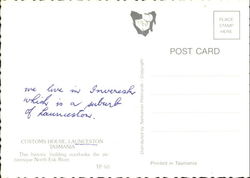 PLACE
STAMP
HERE
POST CARD
we live in Inveresk
which is a suburb
of Launceston.
CUSTOMS HOUSE, LAUNCESTON
TASMANIA
This historic building overlooks the pic-
turesque North Esk River.
Printed in Tasmania